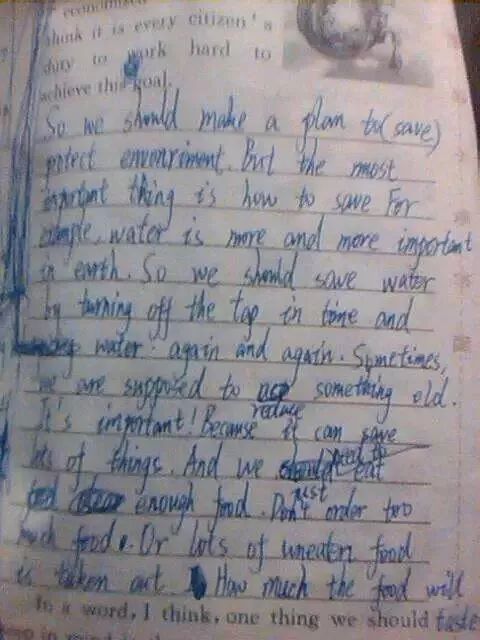 economised
think it is every citizen's
duty to work hard to
achieve this goal.
So we should make a plan to (save)
potect envenriment. But the most
importpnt thing is how to save For
example, water is more and more important
in earth. So we should save water
by turning off the tap in time and
water again and again. Sometimes,
we are supposed to something old.
reduce
It's important! Because it can save
lots of things. And we need to eat
enough food. Just Don't order too
much food. Or lots of uneaten food
is taken out How much the food will
In a word, I think, one thing we should taste